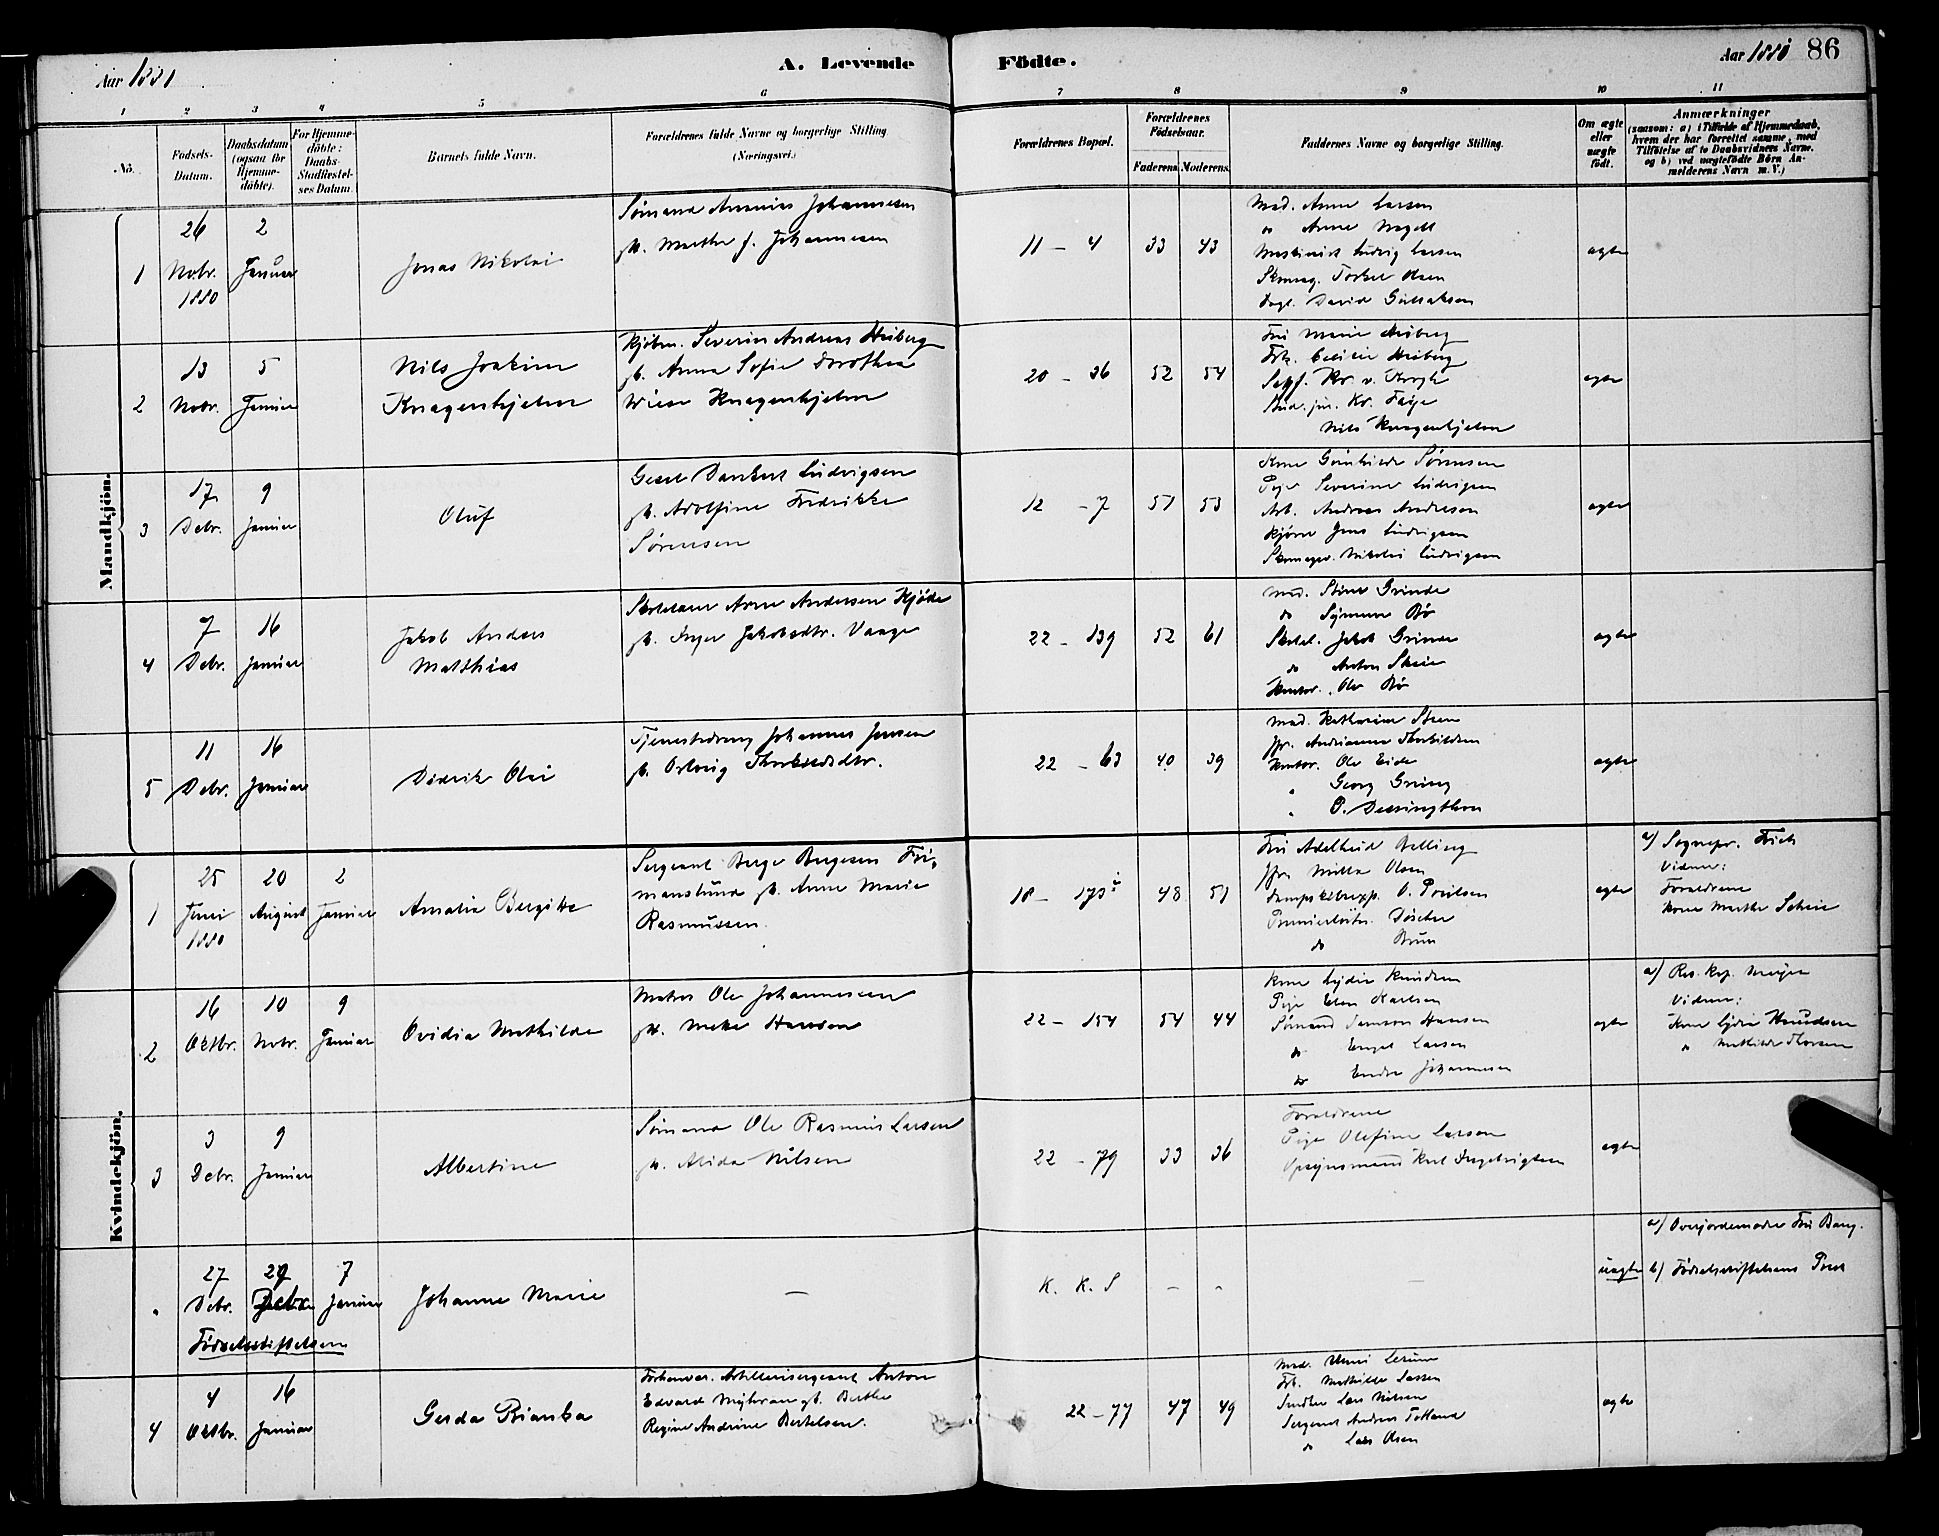 Aar 1881
A. Levende
Födte.
Aar 1881
86
1 2 3 4 5 6 7 8 9 10 11
No.
Födsels-Datum.
Daabsdatum (ogsaa for Hjemme-döbte).
For Hjemme-döbte: Daabs-Stadfæstel-ses Datum.
Barnets fulde Navn.
Forældrenes fulde Navne og borgerlige Stilling (Næringsvei.)
Forældrenes Bopæl.
Forældrenes Födselsaar.
Faderens
Moderens
Faddernes Navne og borgerlige Stilling.
Om ægte eller uægte födt.
Anmærkninger
(saasom: a) i Tilfælde af Hjemmedaab, hvem der har forrettet samme, med Tilföielse af to Daabsvidners Navne. og b) ved uægtefödte Börn An-melderens Navn m. V.)
Mandkjön.
1
26 Nobr. 1880
2 Januar
Jonas Nikolai
Sömand Ananias Johannesen
gb. Marthe f. Johannesen
11 - 4
33
43
Mad. Anne Larsen
do Anne
Maskinist Ludvig Larsen
Skomag. Torkel Olsen
Dagl. David Gullaksen
ægte
2
13 Nobr.
5 Januar
Nils Joakim
Knagenhjelm
Kjöbm. Severin Andreas Heiberg
gb. Anna Sofie Dorothea
Wiese Knagenhjelm
20 - 36
52
54
Fru Marie Heiberg
Frk. Cecilie Heiberg
Kr. v. Krogh
Stud. jur. Kr. Faye
Nils Knagenhjelm
ægte
3
17 Debr.
9 Januar
Oluf
Gesel Dankert Ludvigsen
gb. Adolfine Fredrikke
Sörensen
12 - 7
51
53
Kone Gunhilde Sörensen
Pige Severine Ludvigsen
Arb. Andreas Andresen
Jens Ludvigsen
Skomager. Nikolai Ludvigsen
ægte
4
7 Debr.
16 Januar
Jakob Anders
Matthias
Skolelærer Arne Andersen Kjöde
gb. Inger Jakobsdtr. Vaage
22 - 139
52
61
Mad. Stine Grinde
do Synneve Bö
Skolel. Jakob Grinde
do Anton Skeie
Kontor. Ole Bö
ægte
5
11 Debr.
16 Januar
Didrik Olai
Tjenestedreng Johannes Jensen
gb. Orlaug Thorkildsdtr.
22 - 63
40
39
Mad. Katharine Steen
Jfr. Andrianne Thorkildsen
Kontor. Ole Eide
" Georg Grieg
" O.
ægte
Kvindekjön.
1
25 Juni 1880
20 August
2 Januar
Amalia Bergitte
Sergeant Berge Bergesen Fri-
manslund gb. Anne Marie
Rasmussen.
18 - 173
48
51
Fru Adelheid Belling
Jfr. Milla Olsen
Dampskibsexp. O. Poulsen
Premierlöitn. Döscher
do Brun
ægte
a) Sognepr. Frich
Vidner:
Forældrene
Kone Marthe Scheie
2
16 Oktbr.
10 Nobr.
9 Januar
Ovidia Mathilde
Matros Ole Johannesen
gb. Meke Hansen
22 - 154
54
44
Kone Lydia Knudsen
Pige Elen Karlsen
Sömand Samson Hansen
do Engel Larsen
do Endre Johannesen
ægte
a) Res. Kap. Meyer
Vidner:
Kone Lydia Knudsen
" Mathilde Thorsen
3
3 Debr.
9 Januar
Albertine
Sömand Ole Rasmus Larsen
gb. Alida Nilsen
22 - 79
33
36
Forældrene
Pige Olefine Larsen
Opsynsmand Karl Ingebrigtsen
ægte
"
27 Debr.
29 Debr.
7 Januar
Födselsstiftelsen
Johanne Marie
—
K. K. S
-
-
—
uægte
a) Overjordemoder Fru Bang.
b) Födselsstiftelsens Prot.
4
4 Oktbr.
16 Januar
Gerda Bianka
Forhenvær. Artillerisergeant Anton
Edvard Myhrane gb. Berthe
Regine Andrine Bertelsen.
22 - 77
47
49
Mad. Lerum
Frk. Mathilde Lassen
Snedker Lars Nilsen
Sergeant Andreas Totland
do Lars Olsen
ægte